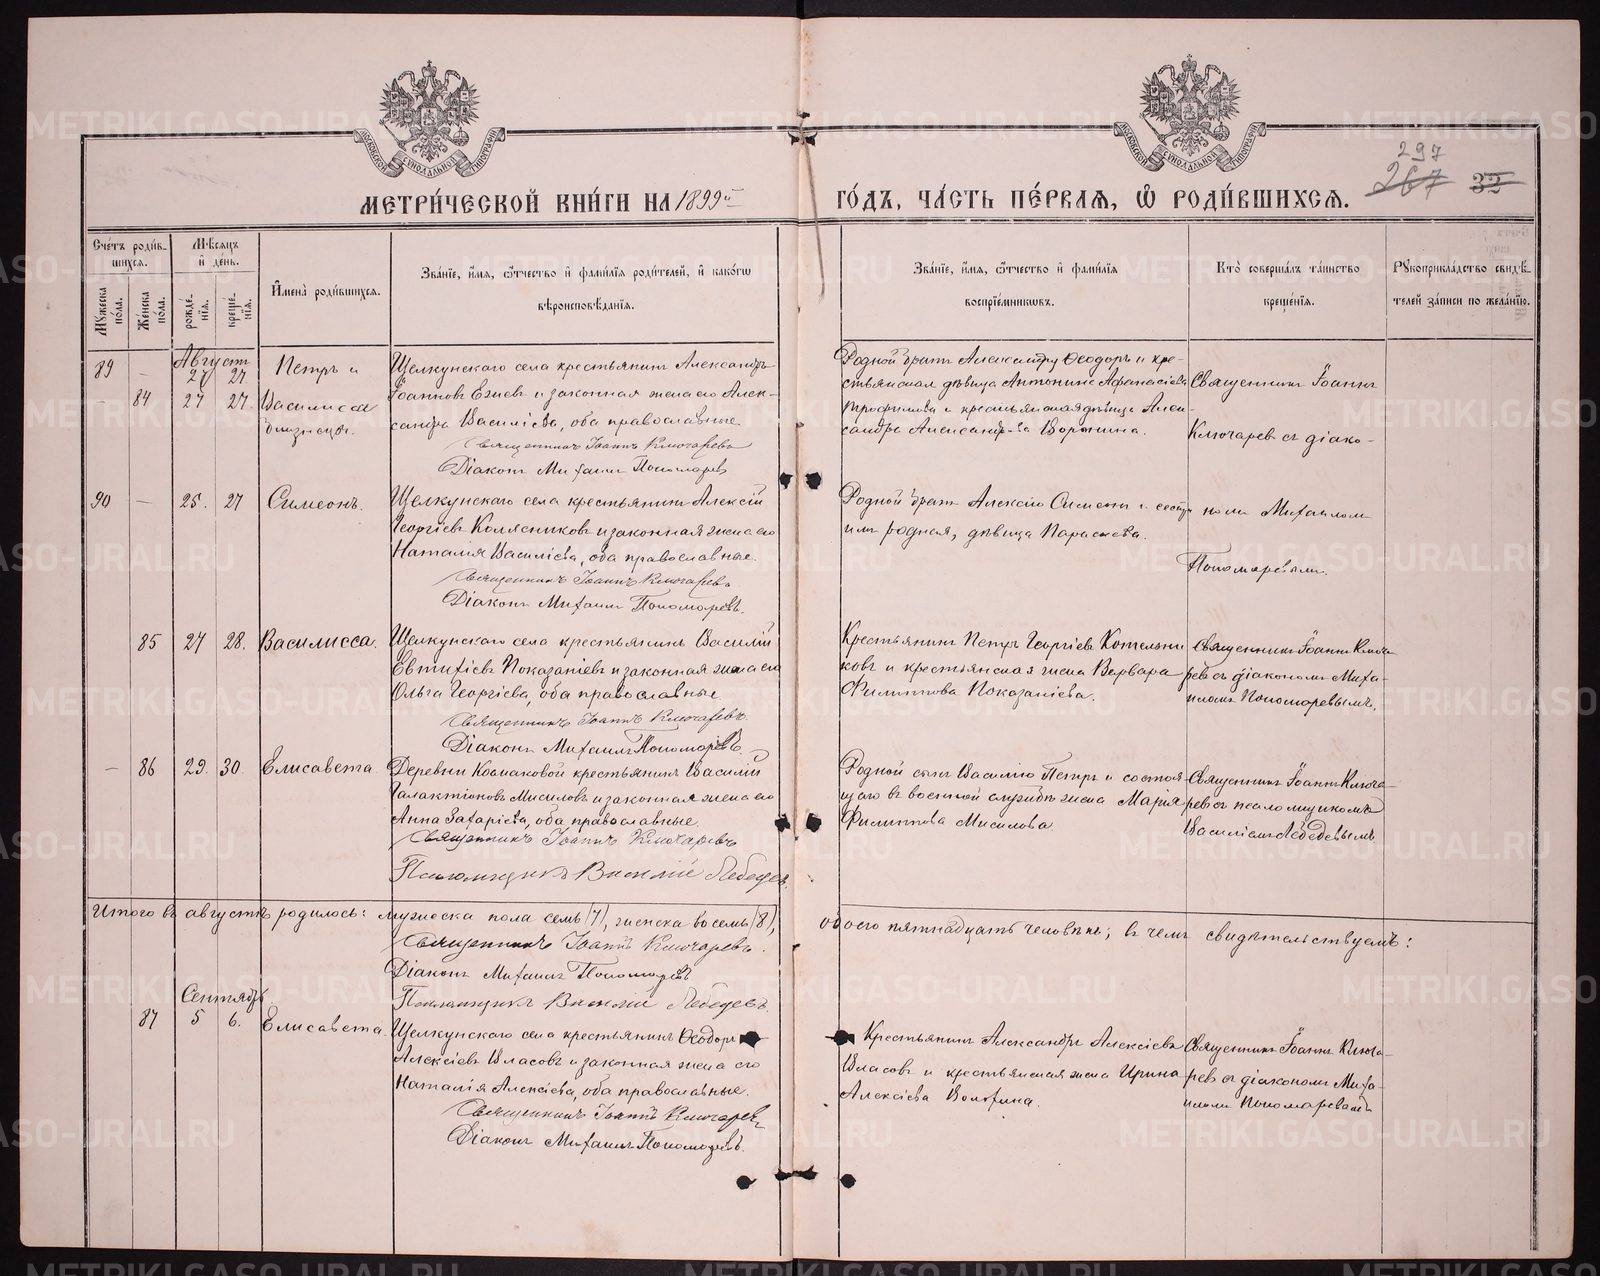 МЕТРИ́ЧЕСКОЙ КНИ́ГИ НА 1899й ГО́ДЪ, ЧА́СТЬ ПЕ́РВАѦ, Ѿ РОДИ́ВШИХСѦ.
297
267 32
Сче́тъ роди́вшихсѧ.
Мꙋжеска по́ла.
Же́нска по́ла.
Мѣ́сѧцъ и҆ де́нь.
рожде́нїѧ.
креще́нїѧ.
И҆мена̀ роди́вшихсѧ.
Зва́нїе, и҆́мѧ, ѻ҆́тчество и҆ фами́лїѧ роди́телей, и҆ како́гѡ
вѣроисповѣ́данїѧ.
Зва́нїе, и҆́мѧ, ѻ҆́тчество и҆ фами́лїѧ
воспрїе́мникѡвъ.
Кто̀ соверша́лъ та́инство
креще́нїѧ.
Рꙋкоприкла́дство свидѣ́телей за́писи по жела́нїю.
Августъ
89 – 27 27 Петръ и
– 84 27 27. Василисса
близнецы.
Щелкунскаго села крестьянинъ Александръ
Іоанновъ Елиевъ и законная жена его Алек-
сандра Василіева, оба православные
Священникъ Іоаннъ Ключаревъ
Діаконъ Михаилъ Пономаревъ
Родной братъ Александру Ѳеодоръ и кре-
стьянская дѣвица Антонина Афанасіева
Трофимова и крестьянская дѣвица Алек-
сандра Александрова Воронина.
Священникъ Іоаннъ
Ключаревъ съ діако-
90 – 25. 27 Симеонъ.
Щелкунскаго села крестьянинъ Алексій
Георгіевъ Колясниковъ и законная жена его
Наталія Василіева, оба православные.
Священникъ Іоаннъ Ключаревъ
Діаконъ Михаилъ Пономаревъ.
Родной братъ Алексію Симеонъ и сестра
имъ родная, дѣвица Параскева.
номъ Михаиломъ
Пономаревымъ.
85 27 28. Василисса.
Щелкунскаго села крестьянинъ Василій
Евтихіевъ Показаніевъ и законная жена его
Ольга Георгіева, оба православные
Священникъ Іоаннъ Ключаревъ.
Діаконъ Михаилъ Пономаревъ
Крестьянинъ Петръ Георгіевъ Котельни-
ковъ и крестьянская жена Варвара
Филиппова Показаніева.
Священникъ Іоаннъ Ключа-
ревъ съ діакономъ Миха-
иломъ Пономаревымъ.
– 86 29. 30. Елисавета
Деревни Космаковой крестьянинъ Василій
Галактіоновъ Мисиловъ и законная жена его
Анна Захаріева, оба православные.
Священникъ Іоаннъ Ключаревъ
Псаломщикъ Василій Лебедевъ.
Родной сынъ Василію Петръ и состоя-
щаго въ военной службѣ жена Марія
Филиппова Мисилова
Священникъ Іоаннъ Ключа-
ревъ съ псаломщикомъ
Василіемъ Лебедевымъ
Итого въ августѣ родилось: мужеска пола семь (7), женска восемь (8), обоего пятнадцать человѣкъ; въ чемъ свидѣтельствуемъ:
Священникъ Іоаннъ Ключаревъ.
Діаконъ Михаилъ Пономаревъ
Псаломщикъ Василій Лебедевъ
Сентябрь.
87 5 6. Елисавета.
Щелкунскаго села крестьянинъ Ѳеодоръ
Алексіевъ Власовъ и законная жена его
Наталія Алексіева, оба православные.
Священникъ Іоаннъ Ключаревъ
Діаконъ Михаилъ Пономаревъ.
Крестьянинъ Александръ Алексіевъ
Власовъ и крестьянская жена Ирина
Алексіева
Священникъ Іоаннъ Ключа-
ревъ съ діакономъ Миха-
иломъ Пономаревымъ
METRIKI.GASO-URAL.RU